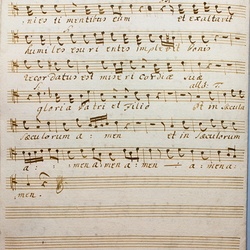 entes ti mentibus eum et exaltavit
humiles esuri entes implevit bonis
Recordatus est miseri cordiæ suæ
allo:
gloria Patri et Filio et in sæcula
sæculorum a: men et in sæculorum
a: mena mena: men a: mena:
men.